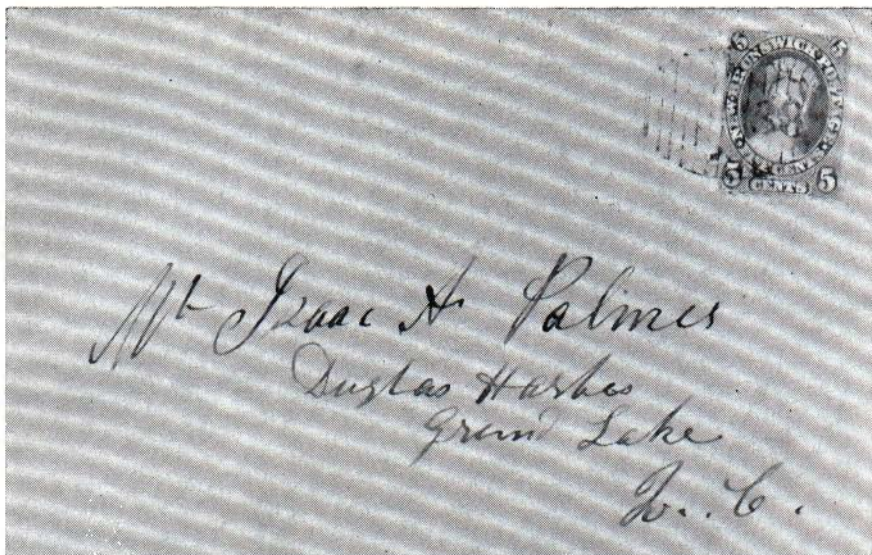 5 5
NEW BRUNSWICK POSTAGE
CENTS
5 CENTS 5
Mr Isaac A. Palmer
Duglas Harbor
Grand Lake
Q. C.